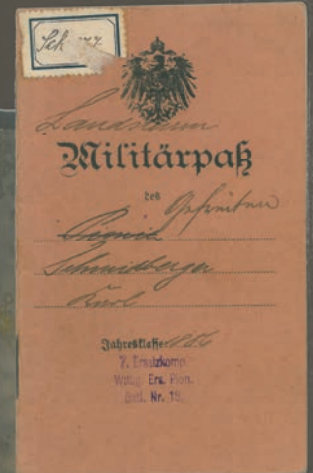 Sch 177
Landsturm
Militärpaß
des Gefreiten
Pionier
Schmidberger
Karl
Jahresklasse: 1906
7. Ersatzkomp.
Württ. Ers. Pion.
Batl. Nr. 13.